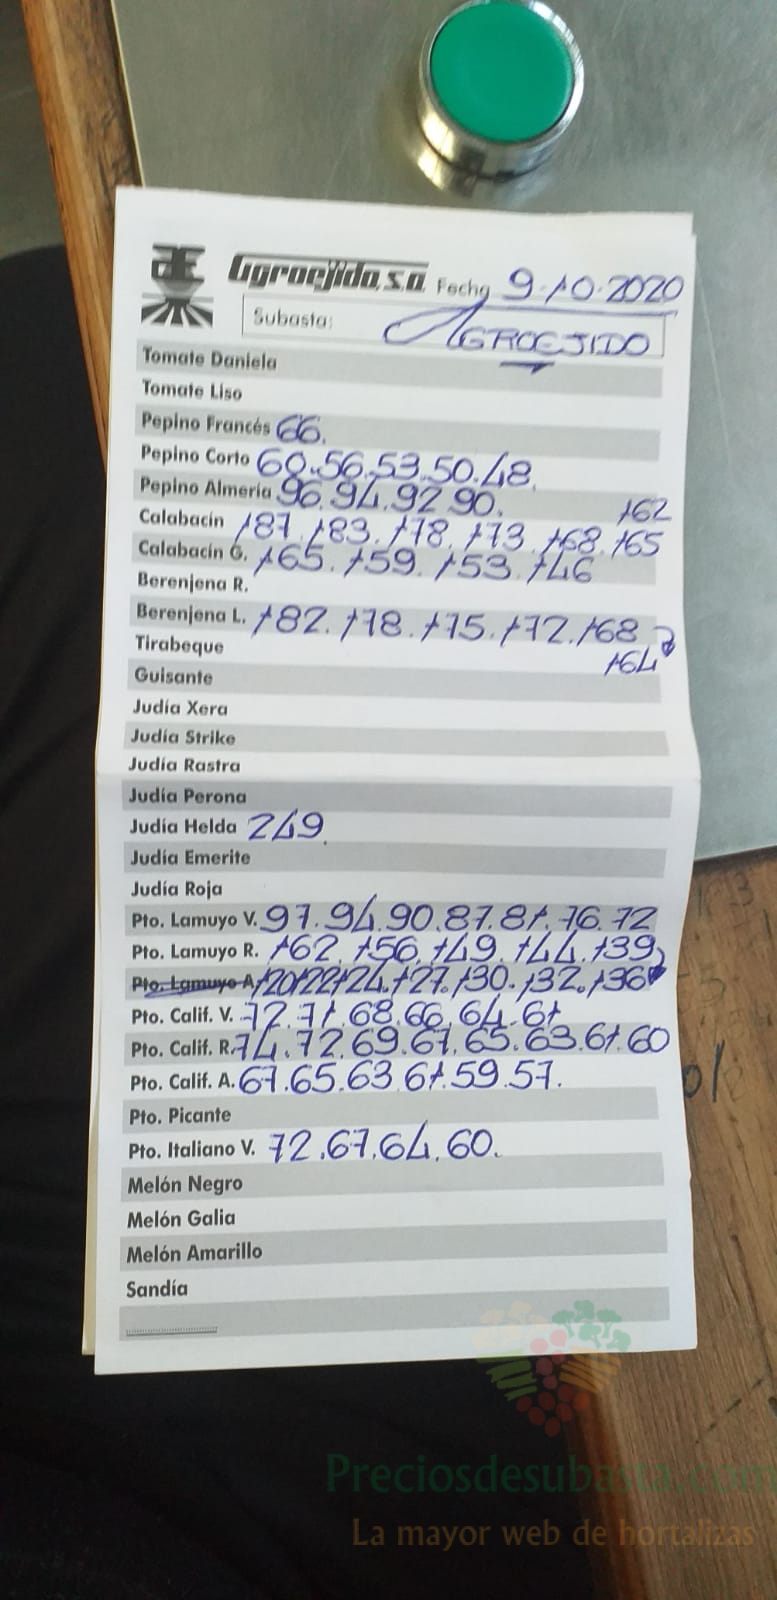 Agroejido, s.a. Fecha 9-10-2020
Subasta: AGROEJIDO
Tomate Daniela
Tomate Liso
Pepino Francés 66.
Pepino Corto 60.56.53.50.48.
Pepino Almería 96.94.92.90.
162
Calabacín 187.183.178.173.168.165
Calabacín G. 165.159.153.146
Berenjena R.
Berenjena L. 182.178.175.172.168
Tirabeque
164
Guisante
Judía Xera
Judía Strike
Judía Rastra
Judía Perona
Judía Helda 249.
Judía Emerite
Judía Roja
Pto. Lamuyo V. 97.94.90.87.81.76.72
Pto. Lamuyo R. 162.156.149.144.139
Pto. Lamuyo A 120/122/124.127.130.132.136
Pto. Calif. V. 72.71.68.66.64.61
Pto. Calif. R. 74.72.69.67.65.63.61.60
Pto. Calif. A. 67.65.63.61.59.57.
Pto. Picante
Pto. Italiano V. 72.67.64.60.
Melón Negro
Melón Galia
Melón Amarillo
Sandía
Preciosdesubasta.com
La mayor web de hortalizas